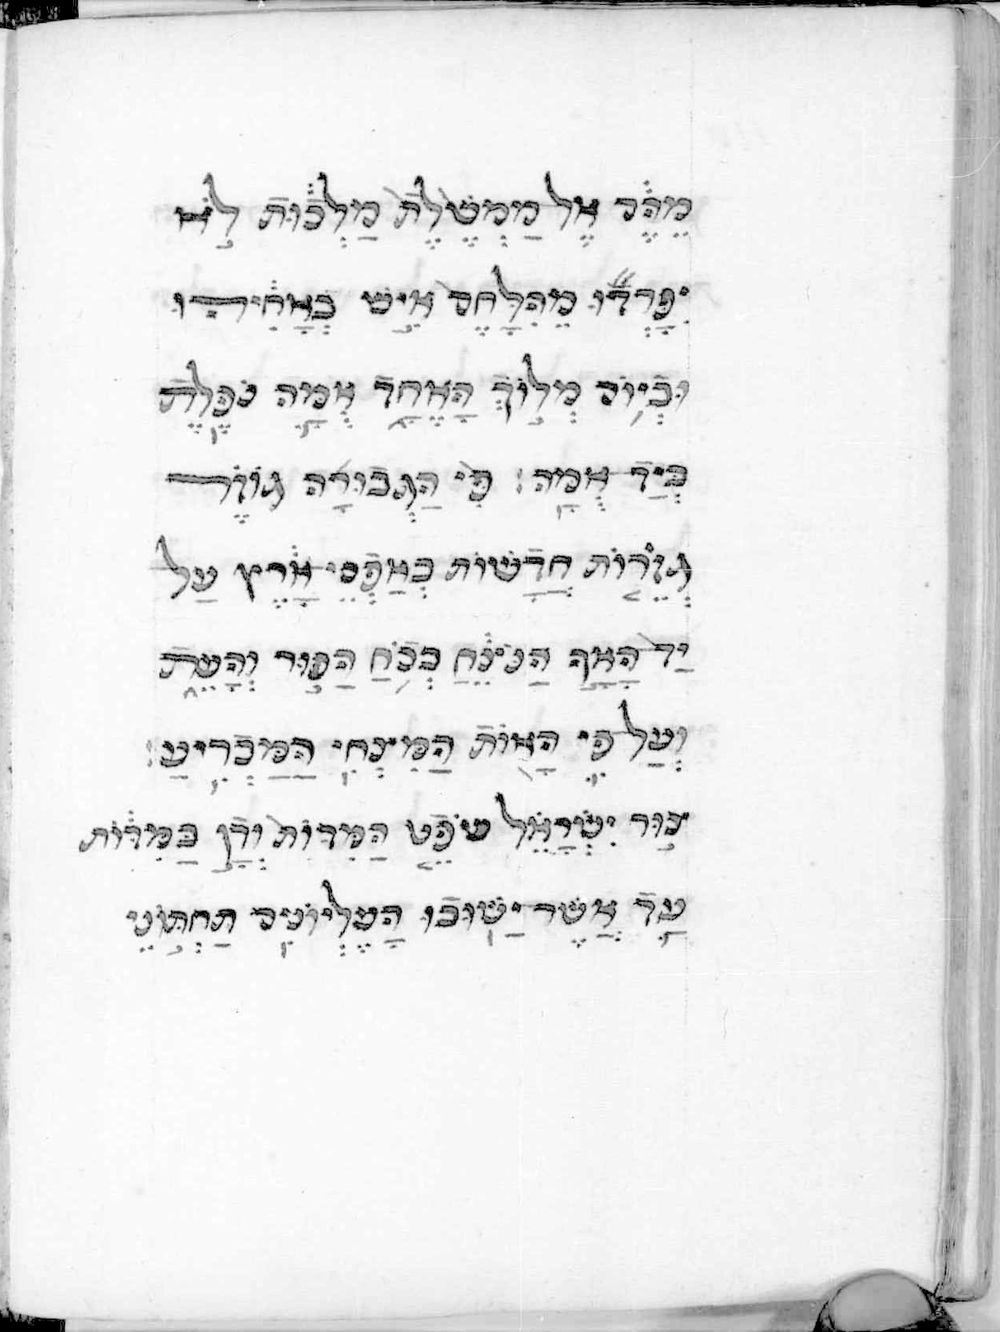 מֵהֶם אֶל מַמְשֶׁלֶת מַלְכוּת לֹא
יִפָּרְדוּ מֵהִלָּחֶם אִישׁ בְּאָחִיהוּ
וּבְיוֹם מְלוֹךְ הָאֶחָד אֻמָּה נֹפֶלֶת
בְּיַד אֻמָּה : כִּי הַגְּבוּרָה גוֹזֶרֶת
גְּזֵרוֹת חֲדָשׁוֹת בְּאַפְסֵי אָרֶץ עַל
יַד הָאַף הַנֹּכֵחַ בְּכֹחַ הַפּוּר וְהָעֵת
וְעַל פִּי הָאוֹת הַמִּזְרָחִי הַמַּכְרִיעַ :
צוּר יִשְׂרָאֵל שֹׁפֵט הַמִּדּוֹת וְדָן בַּמִּדּוֹת
עַד אֲשֶׁר יָשׁוּבוּ הָעֶלְיוֹנִים תַּחְתּוֹנִי